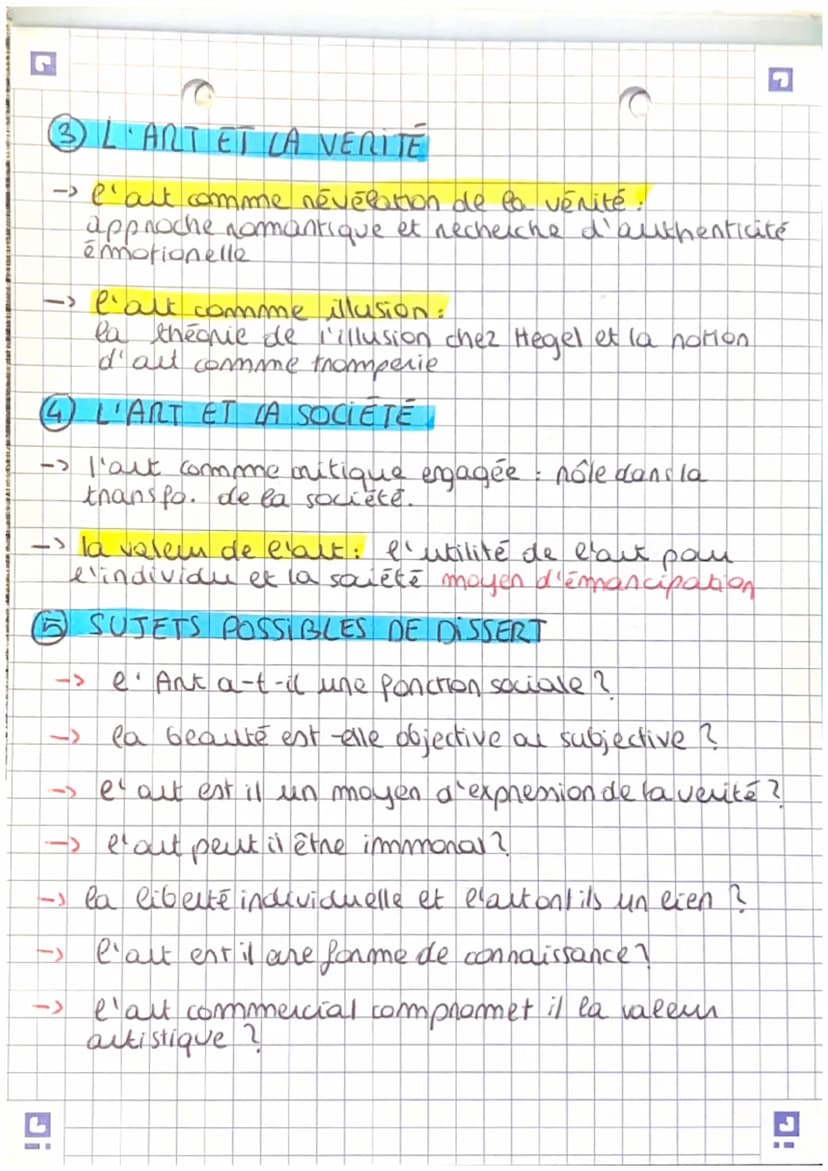 ③ L'ART ET LA VERITÉ
-> l'art comme révélation de la vérité :
approche romantique et recherche d'authenticité
émotionelle
-> l'art comme illusion :
la théorie de l'illusion chez Hegel et la notion
d'art comme tromperie
④ L'ART ET LA SOCIÉTÉ
-> l'art comme critique engagée : rôle dans la
transfo. de la société.
-> la valeur de l'art : l'utilité de l'art pour
l'individu et la société moyen d'émancipation
⑤ SUJETS POSSIBLES DE DISSERT
-> l'Art a-t-il une fonction sociale ?
-> la beauté est-elle objective ou subjective ?
-> l'art est il un moyen d'expression de la verité ?
-> l'art peut il être immoral ?
-> la liberté individuelle et l'art ont ils un lien ?
-> l'art est il une forme de connaissance ?
-> l'art commercial compromet il la valeur
artistique ?